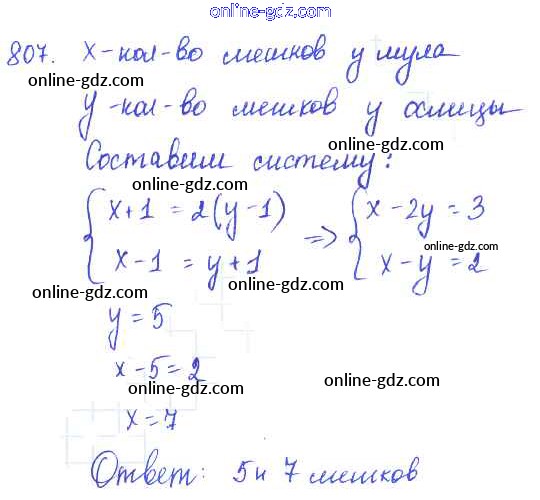 online-gdz.com
807. x-кол-во мешков у мула
online-gdz.com online-gdz.com
y-кол-во мешков у ослицы
online-gdz.com online-gdz.com
Составим систему:
online-gdz.com online-gdz.com
{ x+1 = 2(y-1) => { x-2y = 3
online-gdz.com
x-1 = y+1 x-y = 2
online-gdz.com online-gdz.com
y = 5
x-5=2
online-gdz.com online-gdz.com
x=7
Ответ: 5 и 7 мешков